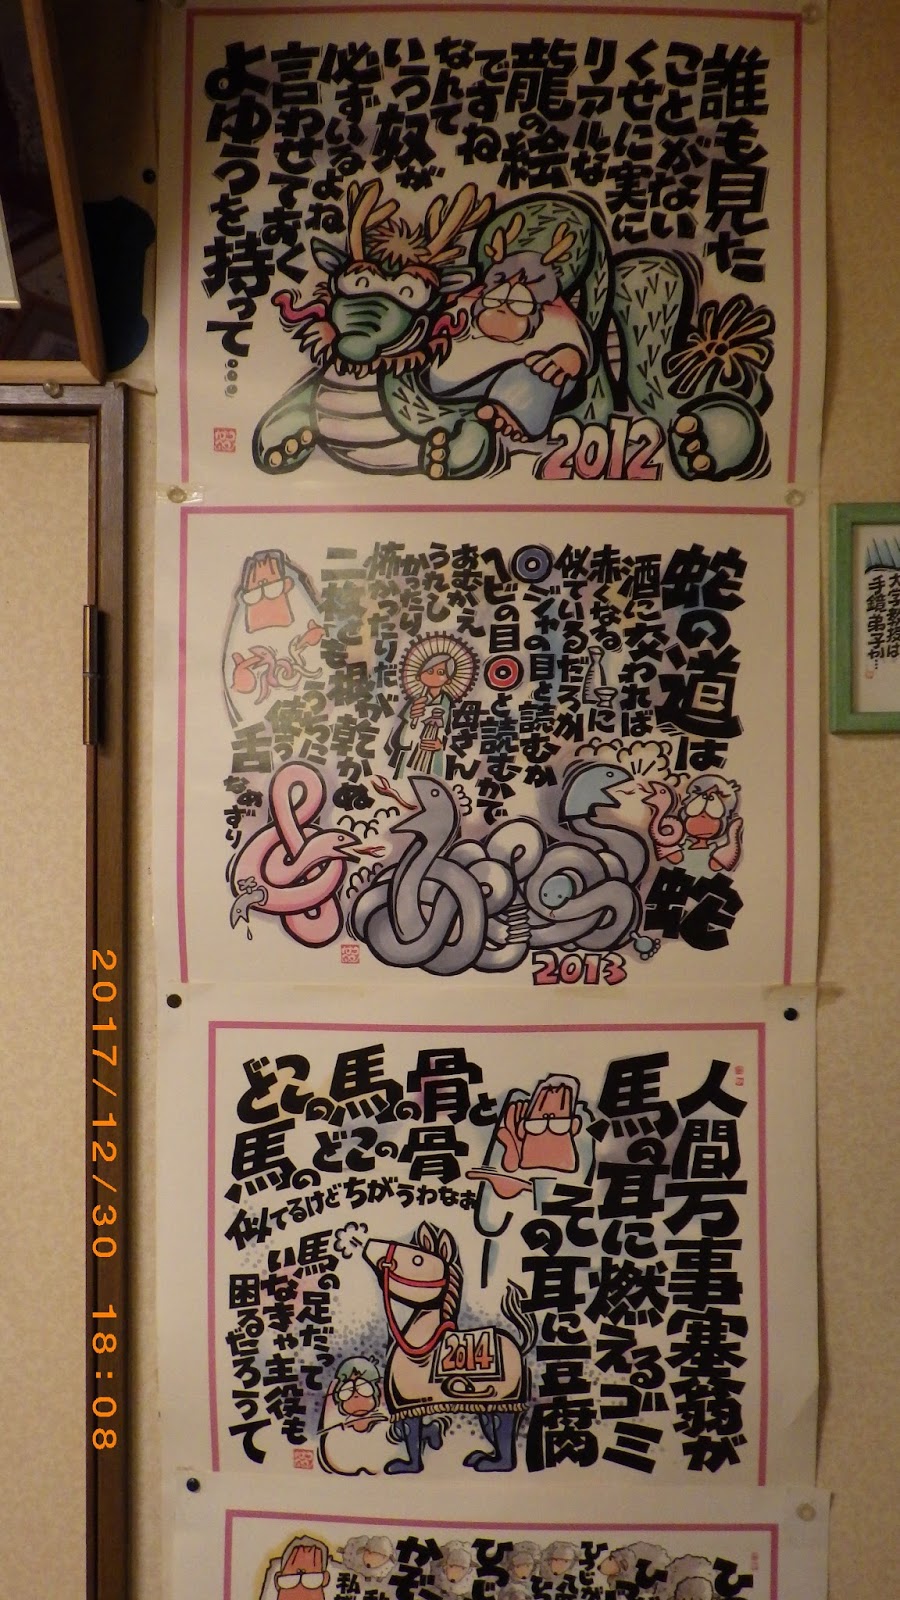 誰も見た
ことがない
くせに実に
リアルな
龍の絵
ですね
なんて
いう奴が
必ずいるよね
言わせておく
よゆうを持って…
2012
蛇の道は
蛇
酒に交われば
赤くなる
に
似ているだろか
ジャの目と読むか
ヘビの目と読むかで
おむかえ
母さん
うれし
かったり
怖かったりだが
二枚とも根が乾かぬ
うちに
使う
舌
なぁずり
2013
人間万事塞翁が
馬の耳に燃えるゴミ
その耳に豆腐
どこの馬の骨と
馬のどこの骨
似てるけどちがうわなぁ
馬の足だって
いなきゃ主役も
困るだろうて
2014
大学教授は
手鏡弟子か…
2017/12/30 18:08